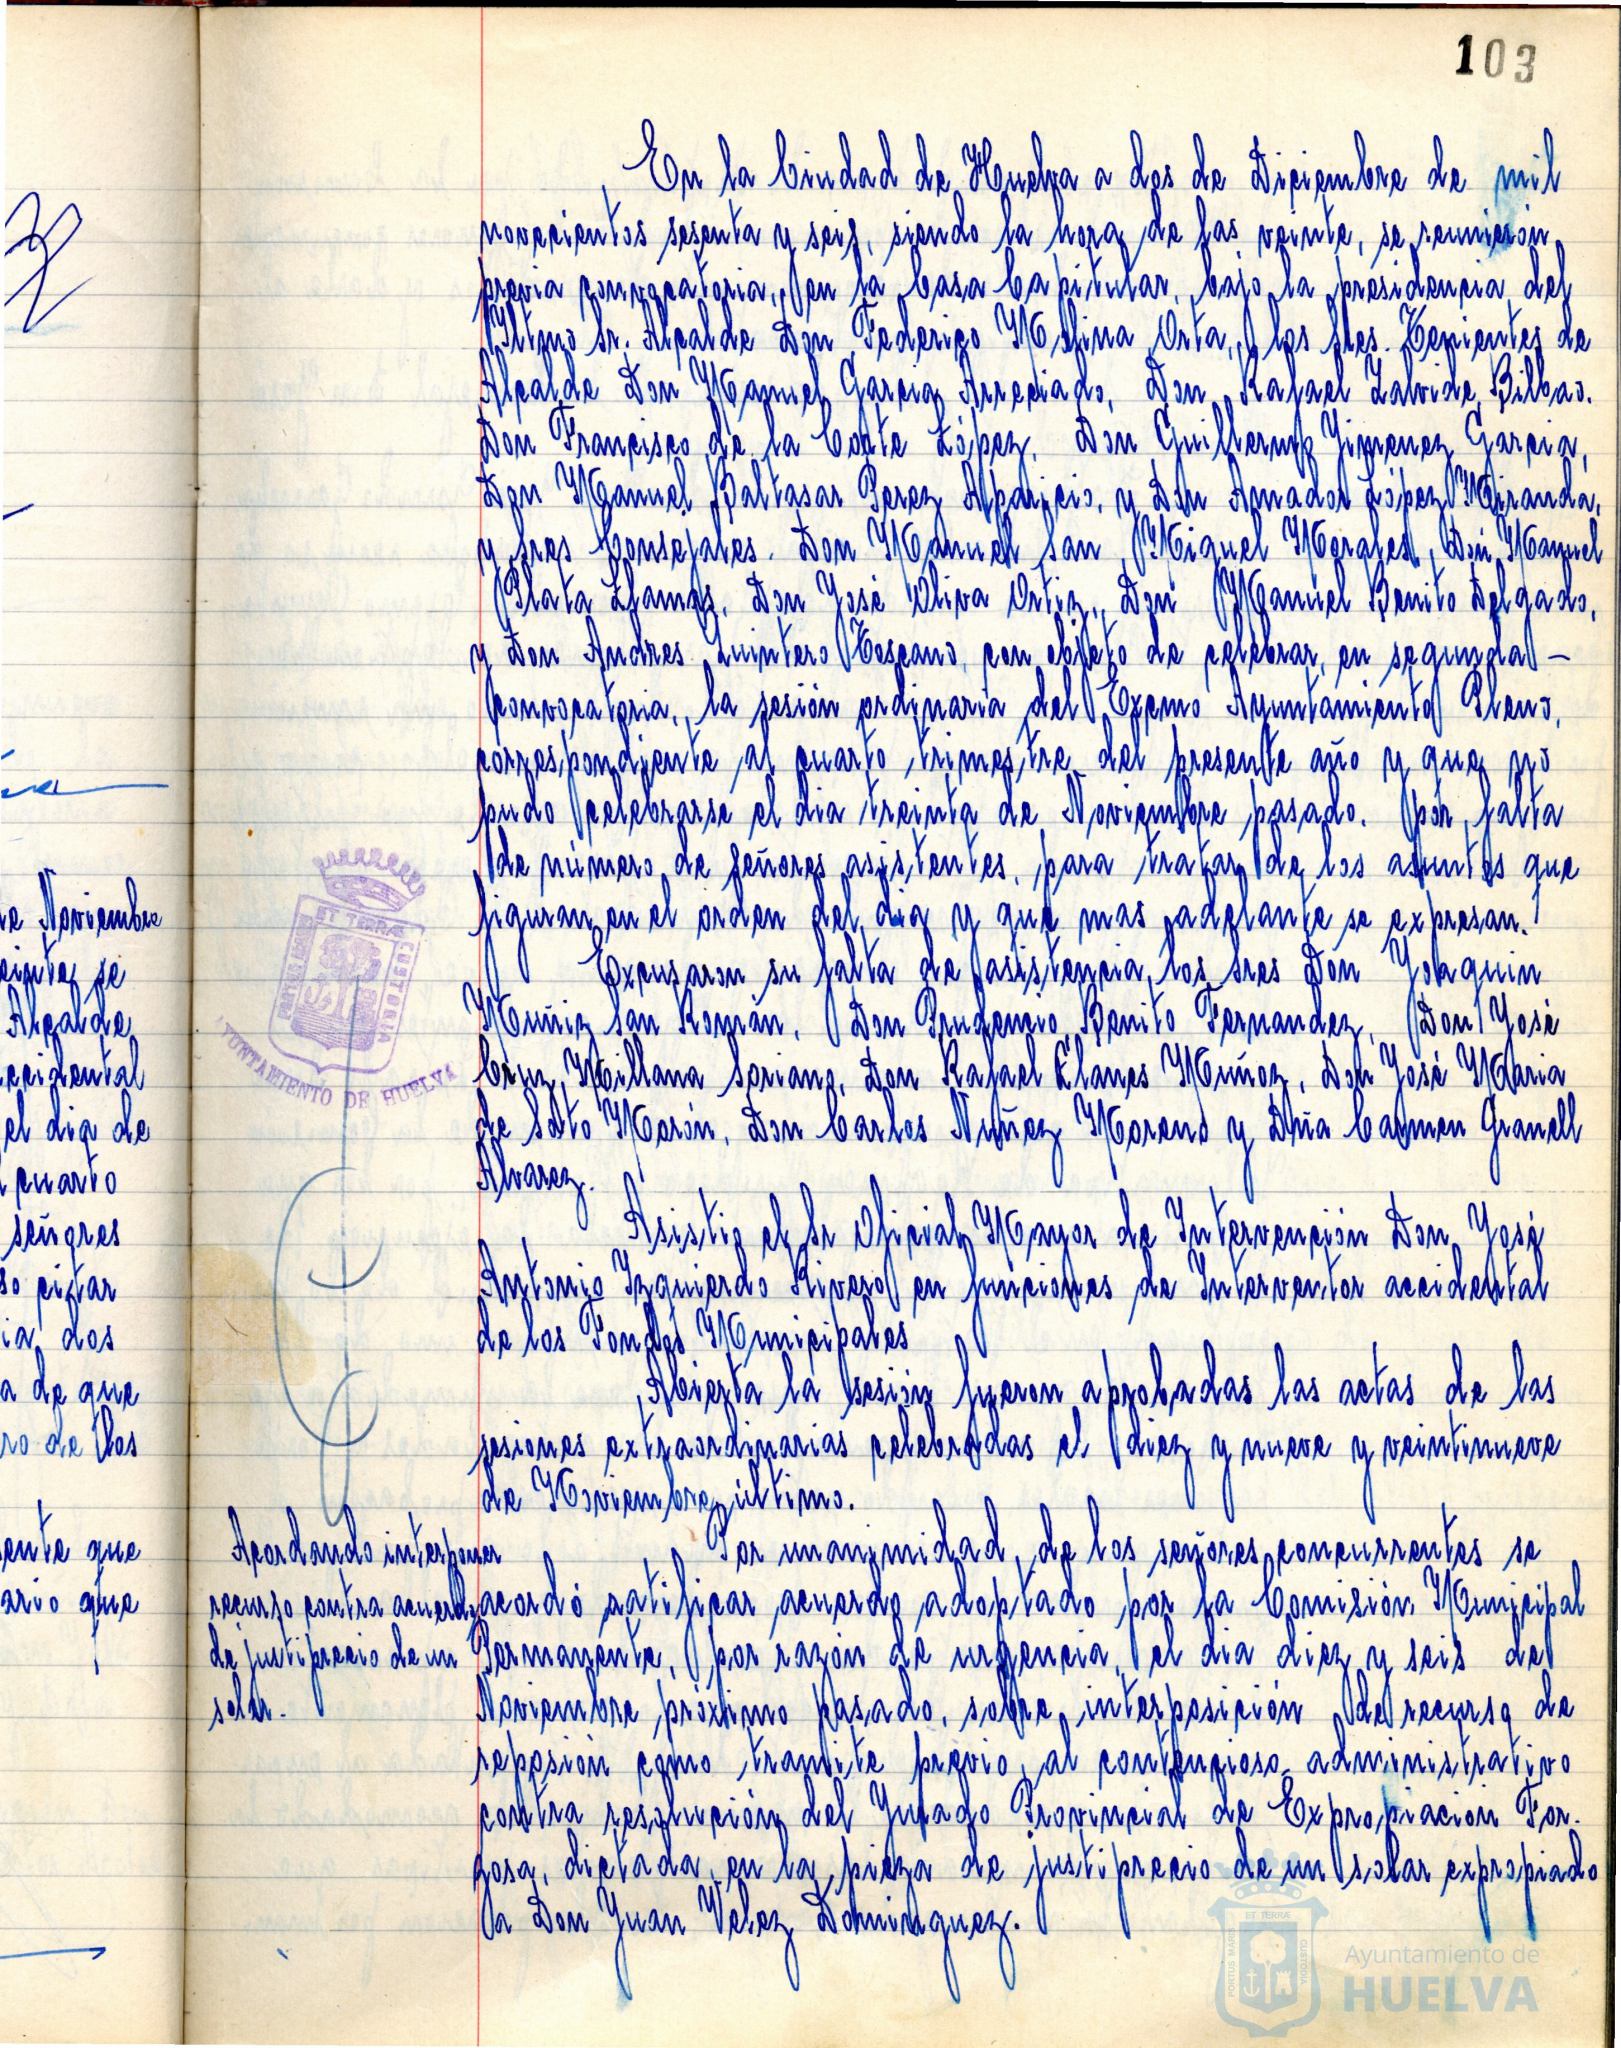 103
En la Ciudad de Huelva a dos de Diciembre de mil
novecientos sesenta y seis, siendo la hora de las veinte, se reunieron,
previa convocatoria, en la Casa Capitular, bajo la presidencia del
Iltmo Sr. Alcalde Don Federico Molina Orta, los Sres. Tenientes de
Alcalde Don Manuel Garcia Arreciado, Don Rafael Zalvide Bilbao.
Don Francisco de la Corte López, Don Guillermo Jimenez Garcia,
Don Manuel Baltasar Perez Aparicio, y Don Amador López Miranda,
y Sres Consejales. Don Manuel San Miguel Morales, Don Manuel
Plata Llamas, Don José Oliva Ortiz, Don Manuel Benito Delgado,
y Don Andres Quintero Toscano, con objeto de celebrar, en segunda –
convocatoria, la sesión ordinaria del Excmo Ayuntamiento Pleno,
correspondiente al cuarto trimestre del presente año y que no
pudo celebrarse el dia treinta de Noviembre pasado, por falta
de número de señores asistentes, para tratar de los asuntos que
figuran en el orden del dia y que mas adelante se expresan.
Excusaron su falta de asistencia los Sres Don Joaquin
Muñiz San Román, Don Prudencio Benito Fernandez, Don José
Cruz Millana Soriano, Don Rafael Llanes Muñoz, Don José Maria
de Soto Morón, Don Carlos Nuñez Moreno y Dña Carmen Granell
Alvarez.
Asistio el Sr Oficial Mayor de Intervención Don José
Antonio Izquierdo Rivero en funciones de Interventor accidental
de los Fondos Municipales
Abierta la sesión fueron aprobadas las actas de las
sesiones extraordinarias celebradas el diez y nueve y veintinueve
de Noviembre último.
Acordando interponer
recurso contra acuerdo
de justiprecio de un
solar.
Por unanimidad, de los señores concurrentes se
acordó ratificar acuerdo adoptado por la Comisión Municipal
Permanente, por razón de urgencia, el dia diez y seis de
Noviembre próximo pasado, sobre interposición de recurso de
reposión como tramite previo al contencioso administrativo
contra resolución del Jurado Provincial de Expropiación For-
zosa, dictada en la pieza de justiprecio de un solar expropiado
a Don Juan Velez Dominguez.
de Noviembre
se
Alcalde
accidental
el dia de
cuarto
señores
citar
dos
de que
de los
que
que
PORTUS MARIS ET TERRÆ CUSTODIA
AYUNTAMIENTO DE HUELVA
PORTUS MARIS ET TERRÆ CUSTODIA
Ayuntamiento de
HUELVA